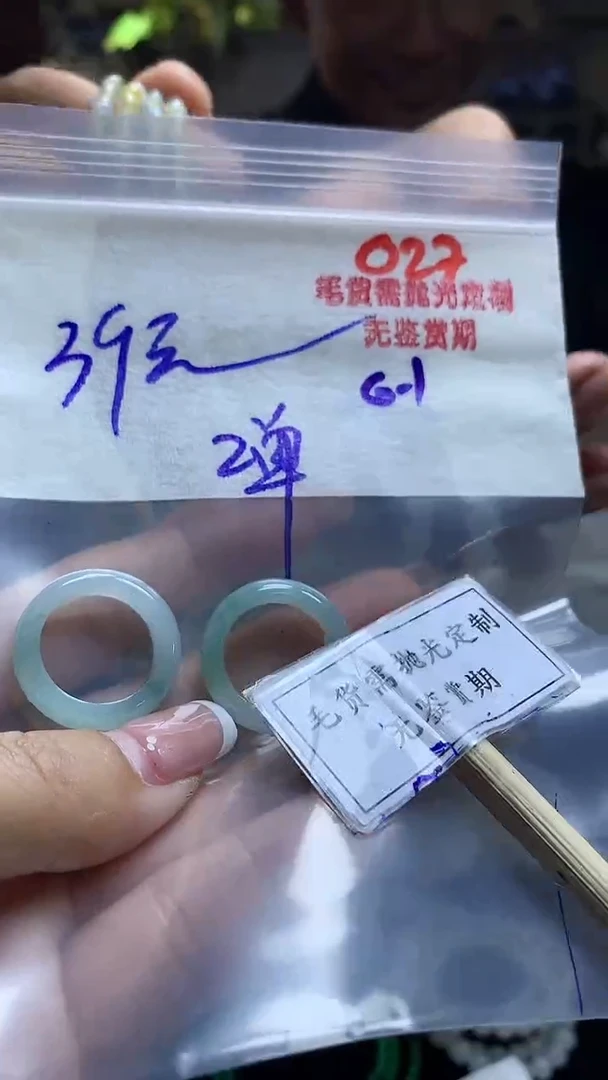 027
毛货需抛光定制
无鉴赏期
39元
6-1
2单
毛货需抛光定制
无鉴赏期